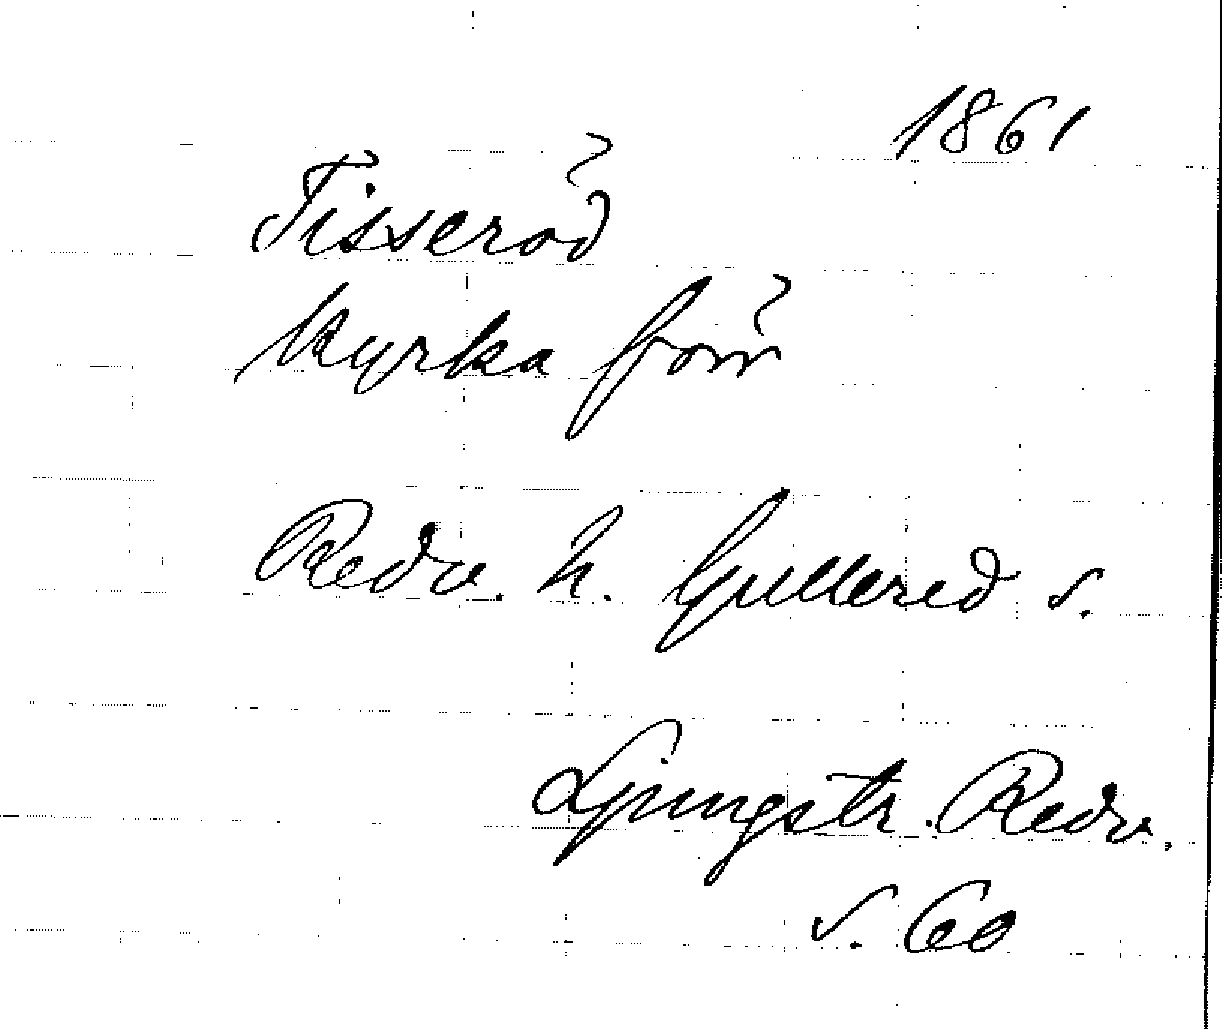 1861
Tisseröd
kyrka förr
Redv. h. Gullered s.
Ljungstr. Redv.
s. 60